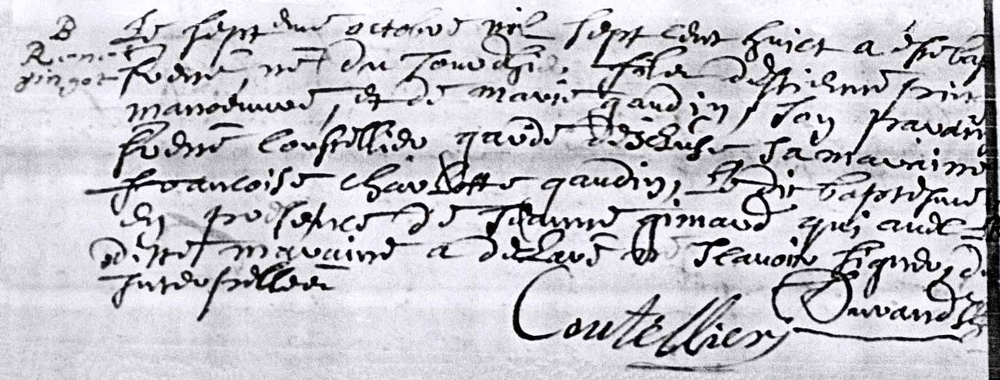 B
René
pingot
Le septieme octobre mil sept cent huict a esté bap
René, né du jourdhui, filz destienne pin
manoeuvre, et de marie gaudin, son parain
René Coustellier garde decluse sa maraine
francoise charlotte gaudin, le dit baptesme
en presence de Jeanne gimard qui avec la
ditte maraine a declaré ne scavoir signer, de
Interpellée
Coutellier Durand